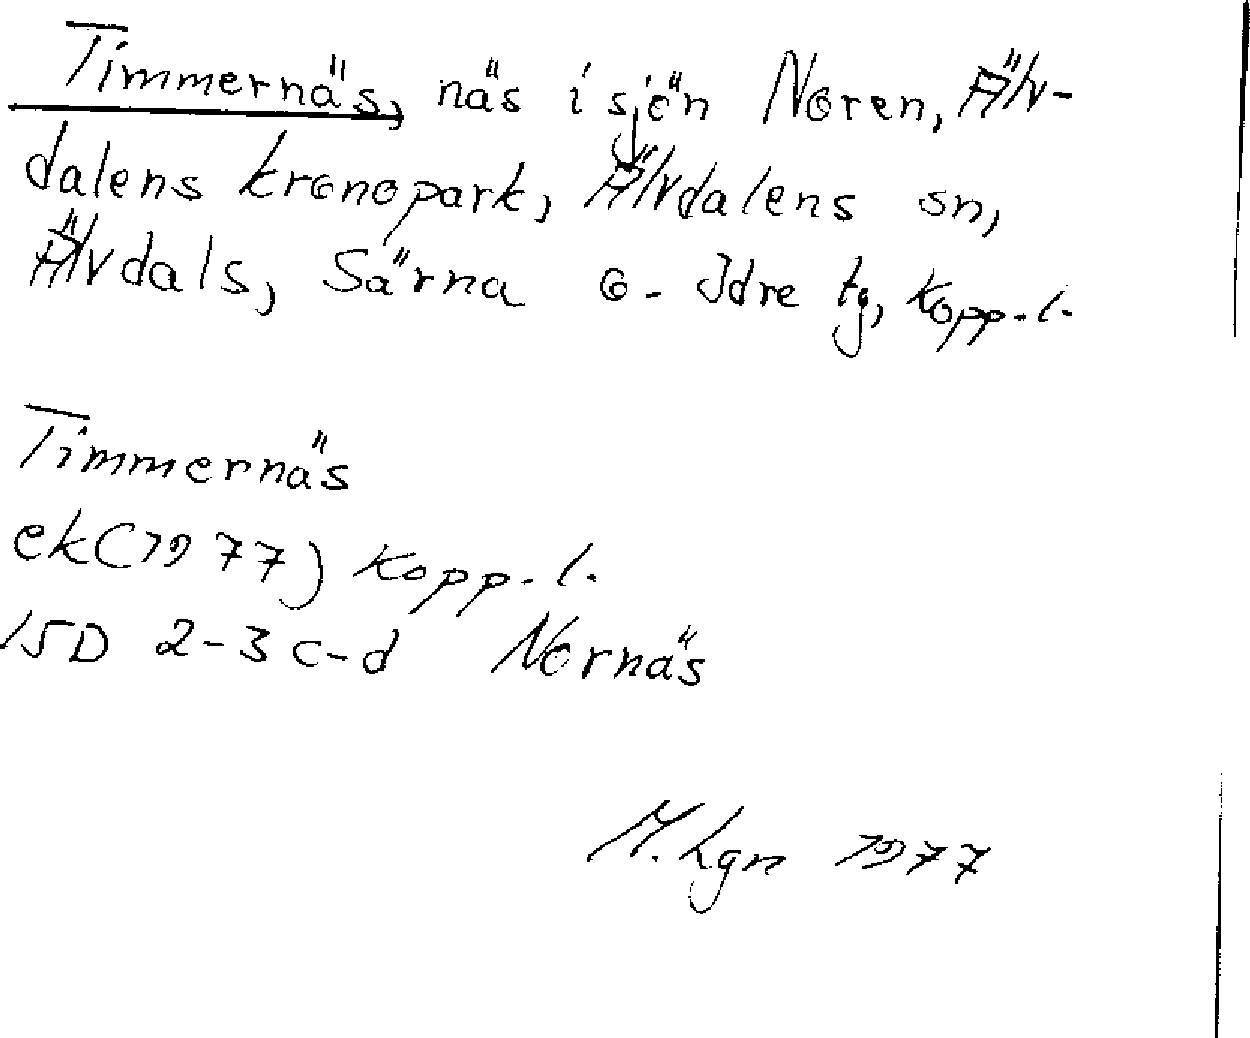 Timmernäs, näs i sjön Noren, Älv-
dalens kronopark, Älvdalens sn,
Älvdals, Särna o. Idre tg, Kopp. l.
Timmernäs
ek (1977) Kopp. l.
15D 2-3 c-d Nornäs
M. Lgn 1977